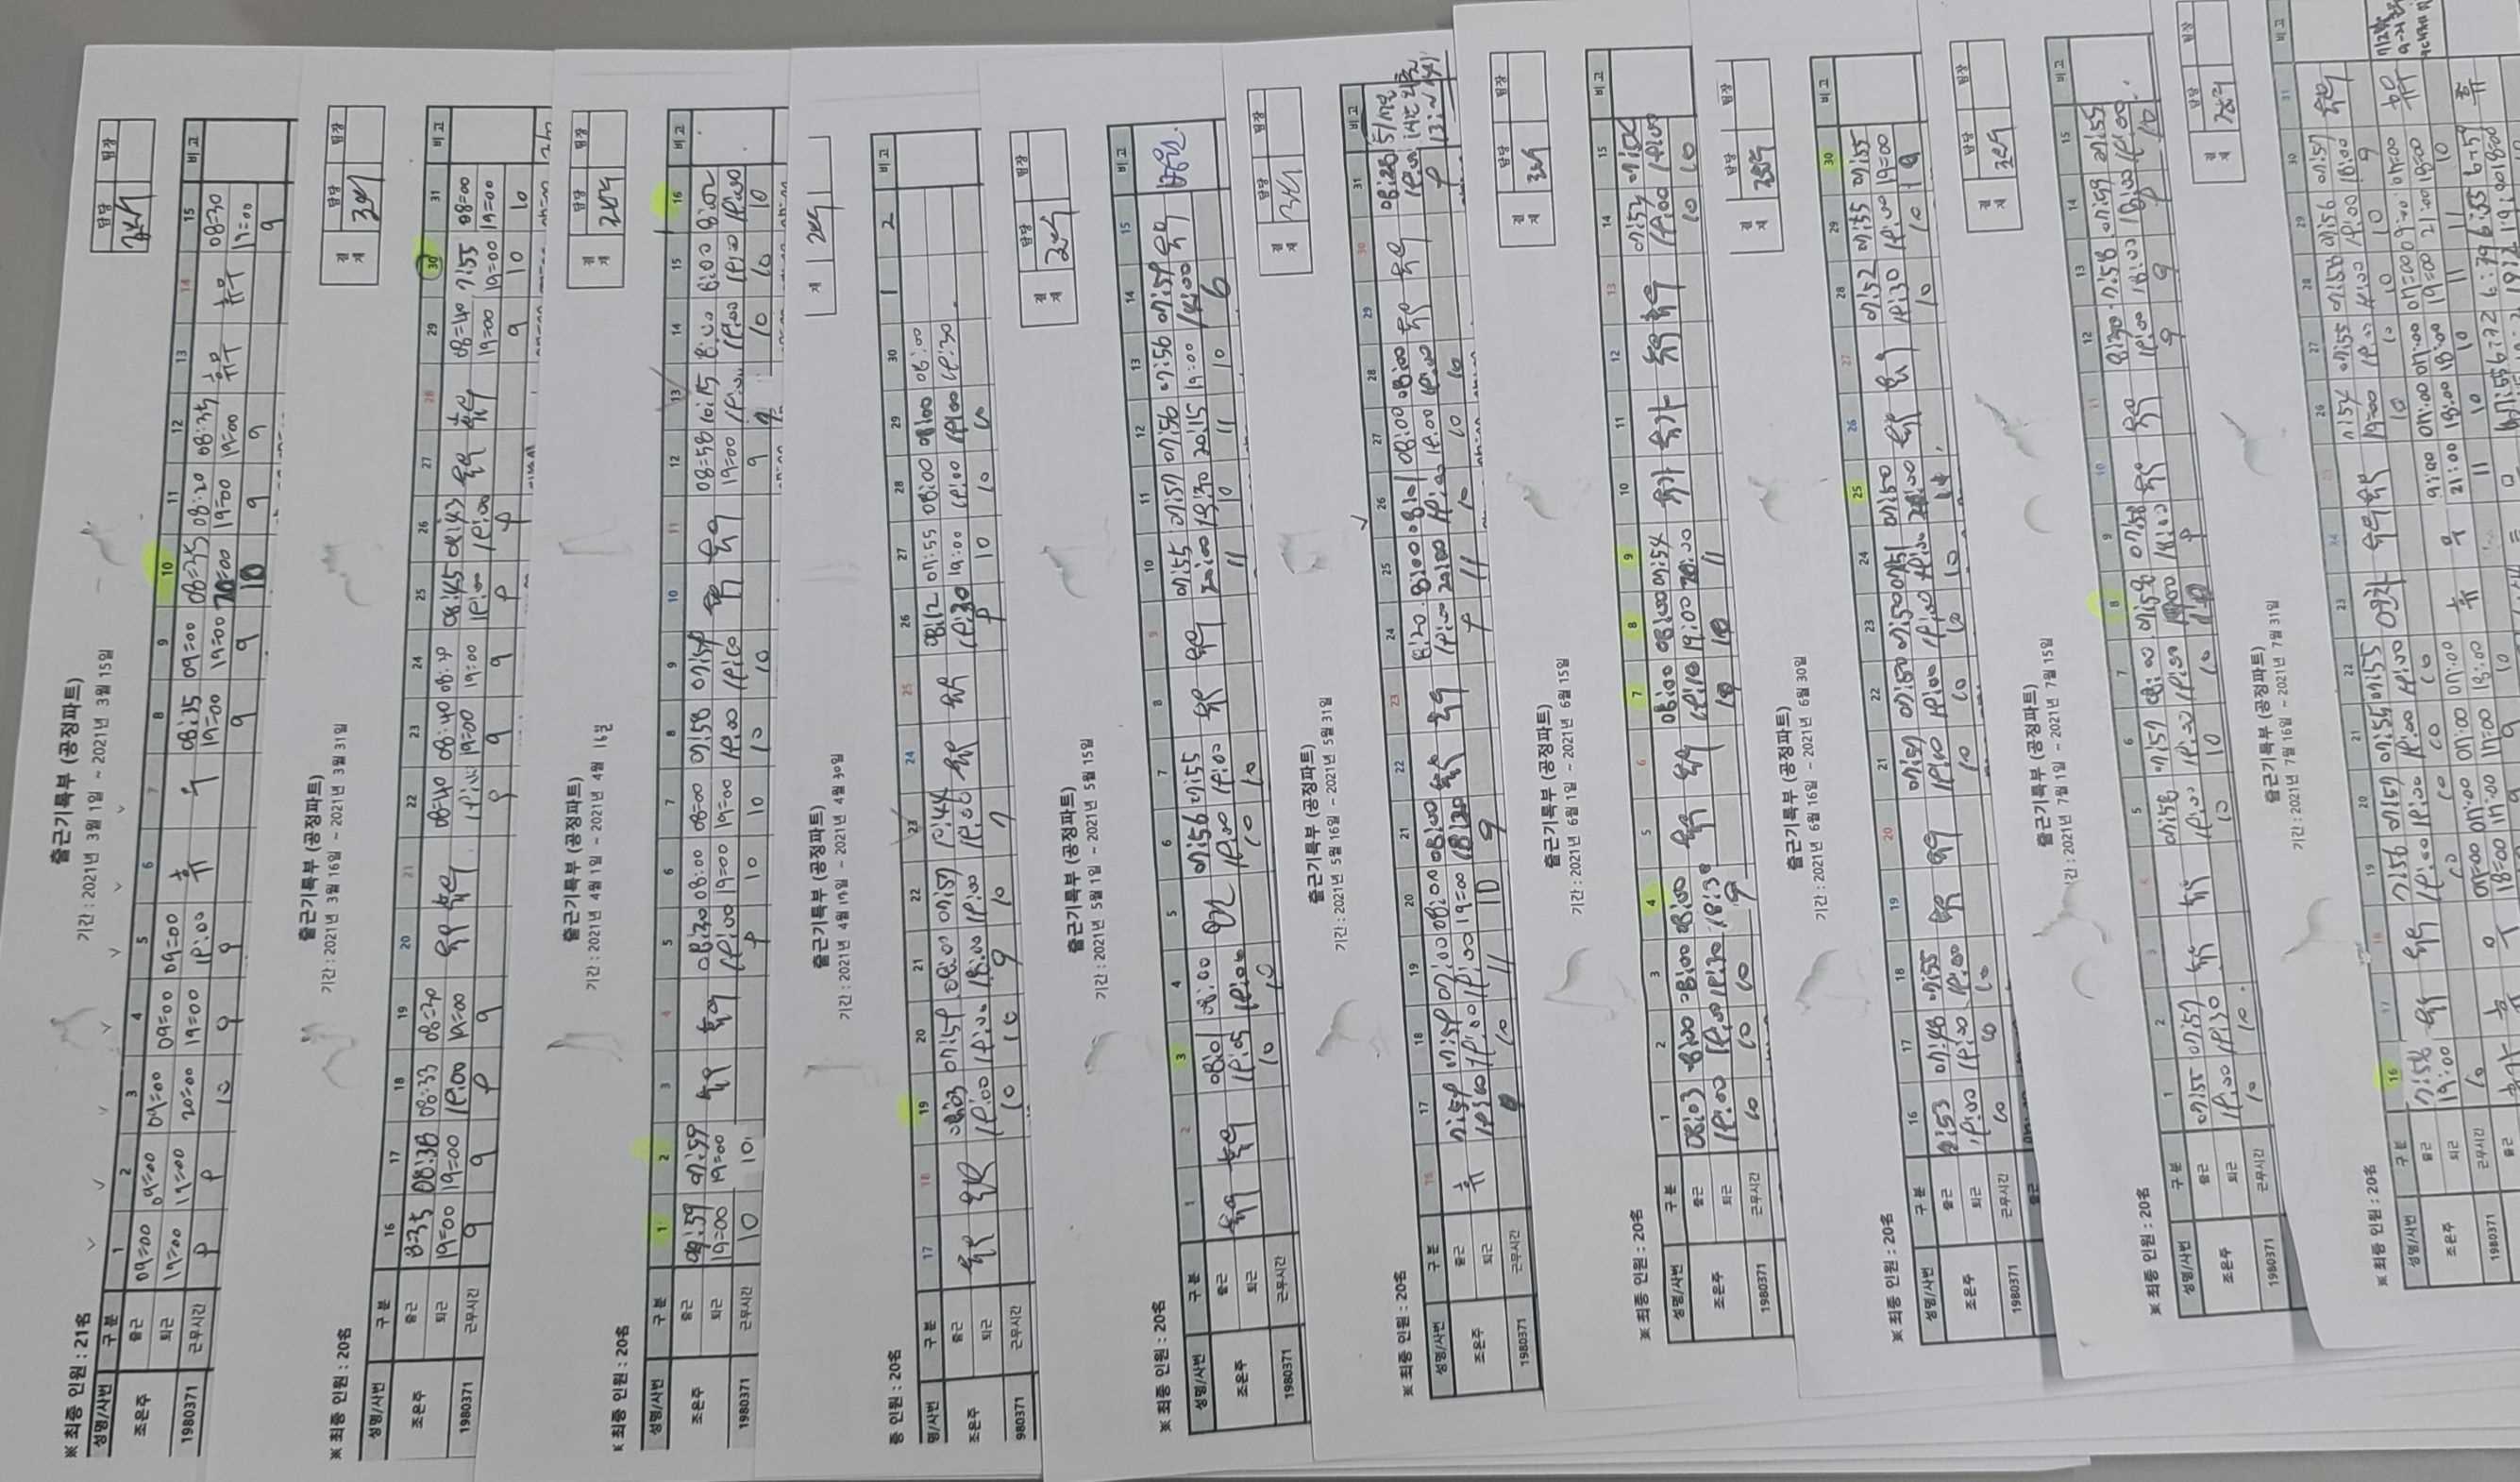 출근기록부 (공정파트)
기간 : 2021년 3월 1일 ~ 2021년 3월 15일
※ 최종 인원 : 21名
담당 팀장
성명/사번 구 분 1 2 3 4 5 6 7 8 9 10 11 12 13 14 15 비 고
조은주 출근 09=00 09=00 09=00 09=00 09=00 휴 무 08:35 09=00 08=35 08:20 08:35 휴무 휴무 08=30
퇴근 19=00 19=00 20=00 19=00 19:00 19=00 19=00 20=00 19=00 19=00 19=00
1980371 근무시간 9 9 10 9 9 9 9 10 9 9 9
출근기록부 (공정파트)
기간 : 2021년 3월 16일 ~ 2021년 3월 31일
※ 최종 인원 : 20名
결재 담당 팀장
성명/사번 구 분 16 17 18 19 20 21 22 23 24 25 26 27 28 29 30 31 비 고
조은주 출근 8=35 08:38 08:33 08=30 휴무 휴무 08=40 08:40 08:45 08:43 휴무 휴무 08=40 7:55 08=00
퇴근 19=00 19=00 19:00 19=00 19:00 19=00 19=00 19:00 19:00 19=00 19=00 19=00
1980371 근무시간 9 9 9 9 9 9 9 9 9 9 10 10
출근기록부 (공정파트)
기간 : 2021년 4월 1일 ~ 2021년 4월 16일
최종 인원 : 20名
결재 담당 팀장
성명/사번 구 분 1 2 3 4 5 6 7 8 9 10 11 12 13 14 15 16 비 고
조은주 출근 07:59 07:59 휴무 휴무 08:30 08:00 08=00 07:58 07:59 휴무 휴무 08=58 10:15 8:00 8:00 8:02
퇴근 19=00 19=00 19:00 19=00 19=00 19:00 19:00 19=00 19:00 19:00 19:00 19:00
1980371 근무시간 10 10 9 10 10 10 10 9 10 10 10
출근기록부 (공정파트)
기간 : 2021년 4월 17일 ~ 2021년 4월 30일
재
종 인원 : 20名
명/사번 구 분 17 18 19 20 21 22 23 24 25 26 27 28 29 30 1 2 비 고
조은주 출근 휴무 휴무 08:03 07:59 08:00 07:57 10:44 휴무 휴무 08:12 07:55 08:00 08:00 08:00
퇴근 19:00 19:00 18:00 19:00 19:00 19:30 19:00 19:00 19:00 19:30
980371 근무시간 10 10 9 10 7 9 10 10 10
출근기록부 (공정파트)
기간 : 2021년 5월 1일 ~ 2021년 5월 15일
※ 최종 인원 : 20名
결재 담당 팀장
성명/사번 구 분 1 2 3 4 5 6 7 8 9 10 11 12 13 14 15 비 고
조은주 출근 휴무 휴무 08:01 08:00 07:56 07:55 휴무 휴무 07:55 07:57 07:56 07:56 07:59 휴무 병원.
퇴근 19:05 19:00 19:00 19:00 20:00 19:30 20:15 19:00 14:00
1980371 근무시간 10 10 10 10 11 10 11 10 6
출근기록부 (공정파트)
기간 : 2021년 5월 16일 ~ 2021년 5월 31일
※ 최종 인원 : 20名
결재 담당 팀장
성명/사번 구 분 16 17 18 19 20 21 22 23 24 25 26 27 28 29 30 31 비 고
조은주 출근 휴 7:59 07:59 07:00 08:00 08:00 휴무 휴무 8:20 8:00 08:01 08:00 08:00 휴무 휴무 08:28
퇴근 19:00 19:00 19:00 19=00 18:30 19:00 20:00 19:00 19:00 19:00 19:00
1980371 근무시간 10 11 10 9 9 11 10 10 10 9
출근기록부 (공정파트)
기간 : 2021년 6월 1일 ~ 2021년 6월 15일
※ 최종 인원 : 20名
결재 담당 팀장
성명/사번 구 분 1 2 3 4 5 6 7 8 9 10 11 12 13 14 15 비 고
조은주 출근 08:03 08:00 08:00 08:00 휴무 휴무 08:00 08:00 07:54 휴가 휴가 휴무 휴무 07:53
퇴근 19:00 19:00 19:30 18:30 19:10 19:00 20:00 19:00 19:00
1980371 근무시간 10 10 10 9 10 10 11 10 10
출근기록부 (공정파트)
기간 : 2021년 6월 16일 ~ 2021년 6월 30일
※ 최종 인원 : 20名
결재 담당 팀장
성명/사번 구 분 16 17 18 19 20 21 22 23 24 25 26 27 28 29 30 비 고
조은주 출근 7:53 07:48 07:55 휴무 휴무 07:57 07:50 07:50 07:51 07:50 휴무 휴무 07:52 07:55 07:55
퇴근 19:00 19:00 19:00 19:00 19:00 19:00 19:00 19:30 19:00 19=00
1980371 근무시간 10 10 10 10 10 10 10 10 10 10
출근
출근기록부 (공정파트)
간 : 2021년 7월 1일 ~ 2021년 7월 15일
※ 최종 인원 : 20名
결재 담당 팀장
성명/사번 구 분 1 2 3 4 5 6 7 8 9 10 11 12 13 14 15 비 고
조은주 출근 07:55 07:57 휴무 휴무 07:58 07:57 08:00 07:58 07:58 휴무 휴무 8:30 7:58 07:59 07:55
퇴근 19:00 19:30 19:00 19:00 19:00 18:00 19:00 18:00 18:00 19:00
1980371 근무시간 10 10 10 10 10 9 9 9 9 10
출근기록부 (공정파트)
기간 : 2021년 7월 16일 ~ 2021년 7월 31일
※ 최종 인원 : 20名
결재 담당 팀장
성명/사번 구 분 16 17 18 19 20 21 22 23 24 25 26 27 28 29 30 31 비 고
조은주 출근 7:58 휴무 휴무 7:56 07:57 07:55 07:55 연차 휴무 휴무 7:54 07:55 07:58 07:56 07:57 휴무
퇴근 19:00 19:00 19:00 19:00 19:00 19=00 19:00 19:00 19:00 18:00
1980371 근무시간 10 10 10 10 10 10 10 10 10 9
출근 휴가 휴 무 07=00 07:00 07:00 07:00 휴 무 9:00 07:00 07:00 07=00 09:00 07=00 휴무
18=00 17:00 17=00 18:00 21:00 18:00 18:00 19=00 21:00 18=00
9 9 10 11 10 10 11 11 10